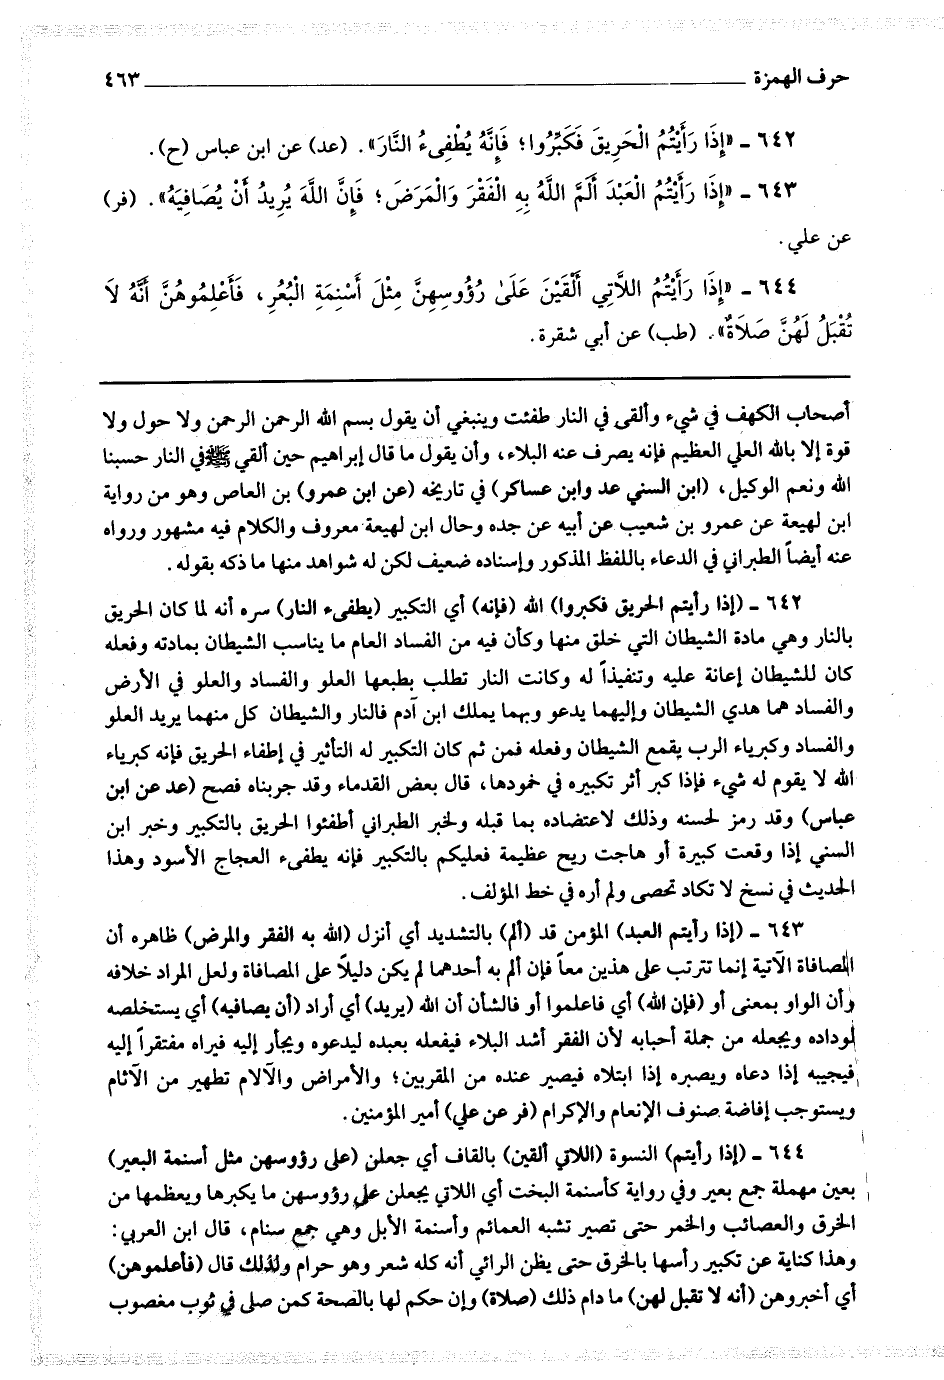 حرف الهمزة ٤٦٣
٦٤٢ ـ «إِذَا رَأَيْتُمُ الْحَرِيقَ فَكَبِّرُوا؛ فَإِنَّهُ يُطْفِىءُ النَّارَ». (عد) عن ابن عباس (ح).
٦٤٣ ـ «إِذَا رَأَيْتُمُ الْعَبْدَ أَلَمَّ اللَّهُ بِهِ الْفَقْرَ وَالْمَرَضَ؛ فَإِنَّ اللَّهَ يُرِيدُ أَنْ يُصَافِيَهُ». (فر)
عن علي.
٦٤٤ ـ «إِذَا رَأَيْتُمُ اللَّاتِي أَلْقَيْنَ عَلَىٰ رُؤُوسِهِنَّ مِثْلَ أَسْنِمَةِ الْبُعُرِ، فَأَعْلِمُوهُنَّ أَنَّهُ لَا
تُقْبَلُ لَهُنَّ صَلَاةٌ». (طب) عن أبي شقرة.
أصحاب الكهف في شيء وألقى في النار طفئت وينبغي أن يقول بسم الله الرحمن الرحمن ولا حول ولا
قوة إلا بالله العلي العظيم فإنه يصرف عنه البلاء، وأن يقول ما قال إبراهيم حين ألقي ﷺ في النار حسبنا
الله ونعم الوكيل، (ابن السني عد وابن عساكر) في تاريخه (عن ابن عمرو) بن العاص وهو من رواية
ابن لهيعة عن عمرو بن شعيب عن أبيه عن جده وحال ابن لهيعة معروف والكلام فيه مشهور ورواه
عنه أيضاً الطبراني في الدعاء باللفظ المذكور وإسناده ضعيف لكن له شواهد منها ما ذكه بقوله.
٦٤٢ ـ (إذا رأيتم الحريق فكبروا) الله (فإنه) أي التكبير (يطفىء النار) سره أنه لما كان الحريق
بالنار وهي مادة الشيطان التي خلق منها وكأن فيه من الفساد العام ما يناسب الشيطان بمادته وفعله
كان للشيطان إعانة عليه وتنفيذاً له وكانت النار تطلب بطبعها العلو والفساد والعلو في الأرض
والفساد هما هدي الشيطان وإليهما يدعو وبهما يملك ابن آدم فالنار والشيطان كل منهما يريد العلو
والفساد وكبرياء الرب يقمع الشيطان وفعله فمن ثم كان التكبير له التأثير في إطفاء الحريق فإنه كبرياء
الله لا يقوم له شيء فإذا كبر أثر تكبيره في خمودها، قال بعض القدماء وقد جربناه فصح (عد عن ابن
عباس) وقد رمز لحسنه وذلك لاعتضاده بما قبله ولخبر الطبراني أطفئوا الحريق بالتكبير وخبر ابن
السني إذا وقعت كبيرة أو هاجت ريح عظيمة فعليكم بالتكبير فإنه يطفىء العجاج الأسود وهذا
الحديث في نسخ لا تكاد تحصى ولم أره في خط المؤلف.
٦٤٣ ـ (إذا رأيتم العبد) المؤمن قد (ألم) بالتشديد أي أنزل (الله به الفقر والمرض) ظاهره أن
المصافاة الآتية إنما تترتب على هذين معاً فإن ألم به أحدهما لم يكن دليلاً على المصافاة ولعل المراد خلافه
وأن الواو بمعنى أو (فإن الله) أي فاعلموا أو فالشأن أن الله (يريد) أي أراد (أن يصافيه) أي يستخلصه
لوداده ويجعله من جملة أحبابه لأن الفقر أشد البلاء فيفعله بعبده ليدعوه ويجأر إليه فيراه مفتقراً إليه
فيجيبه إذا دعاه ويصبره إذا ابتلاه فيصير عنده من المقربين؛ والأمراض والآلام تطهير من الآثام
ويستوجب إفاضة صنوف الإنعام والإكرام (فر عن علي) أمير المؤمنين.
٦٤٤ ـ (إذا رأيتم) النسوة (اللاتي ألقين) بالقاف أي جعلن (على رؤوسهن مثل أسنمة البعير)
بعين مهملة جمع بعير وفي رواية كأسنمة البخت أي اللاتي يجعلن على رؤوسهن ما يكبرها ويعظمها من
الخرق والعصائب والخمر حتى تصير تشبه العمائم وأسنمة الأبل وهي جمع سنام، قال ابن العربي:
وهذا كناية عن تكبير رأسها بالخرق حتى يظن الرائي أنه كله شعر وهو حرام ولذلك قال (فأعلموهن)
أي أخبروهن (أنه لا تقبل لهن) ما دام ذلك (صلاة) وإن حكم لها بالصحة كمن صلى في ثوب مغصوب